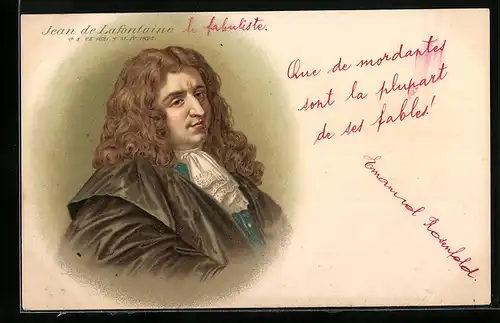 Jean de Lafontaine le fabuliste.
Que de mordantes
sont la plupart
de ses fables!
Emanuel Rosenfeld.